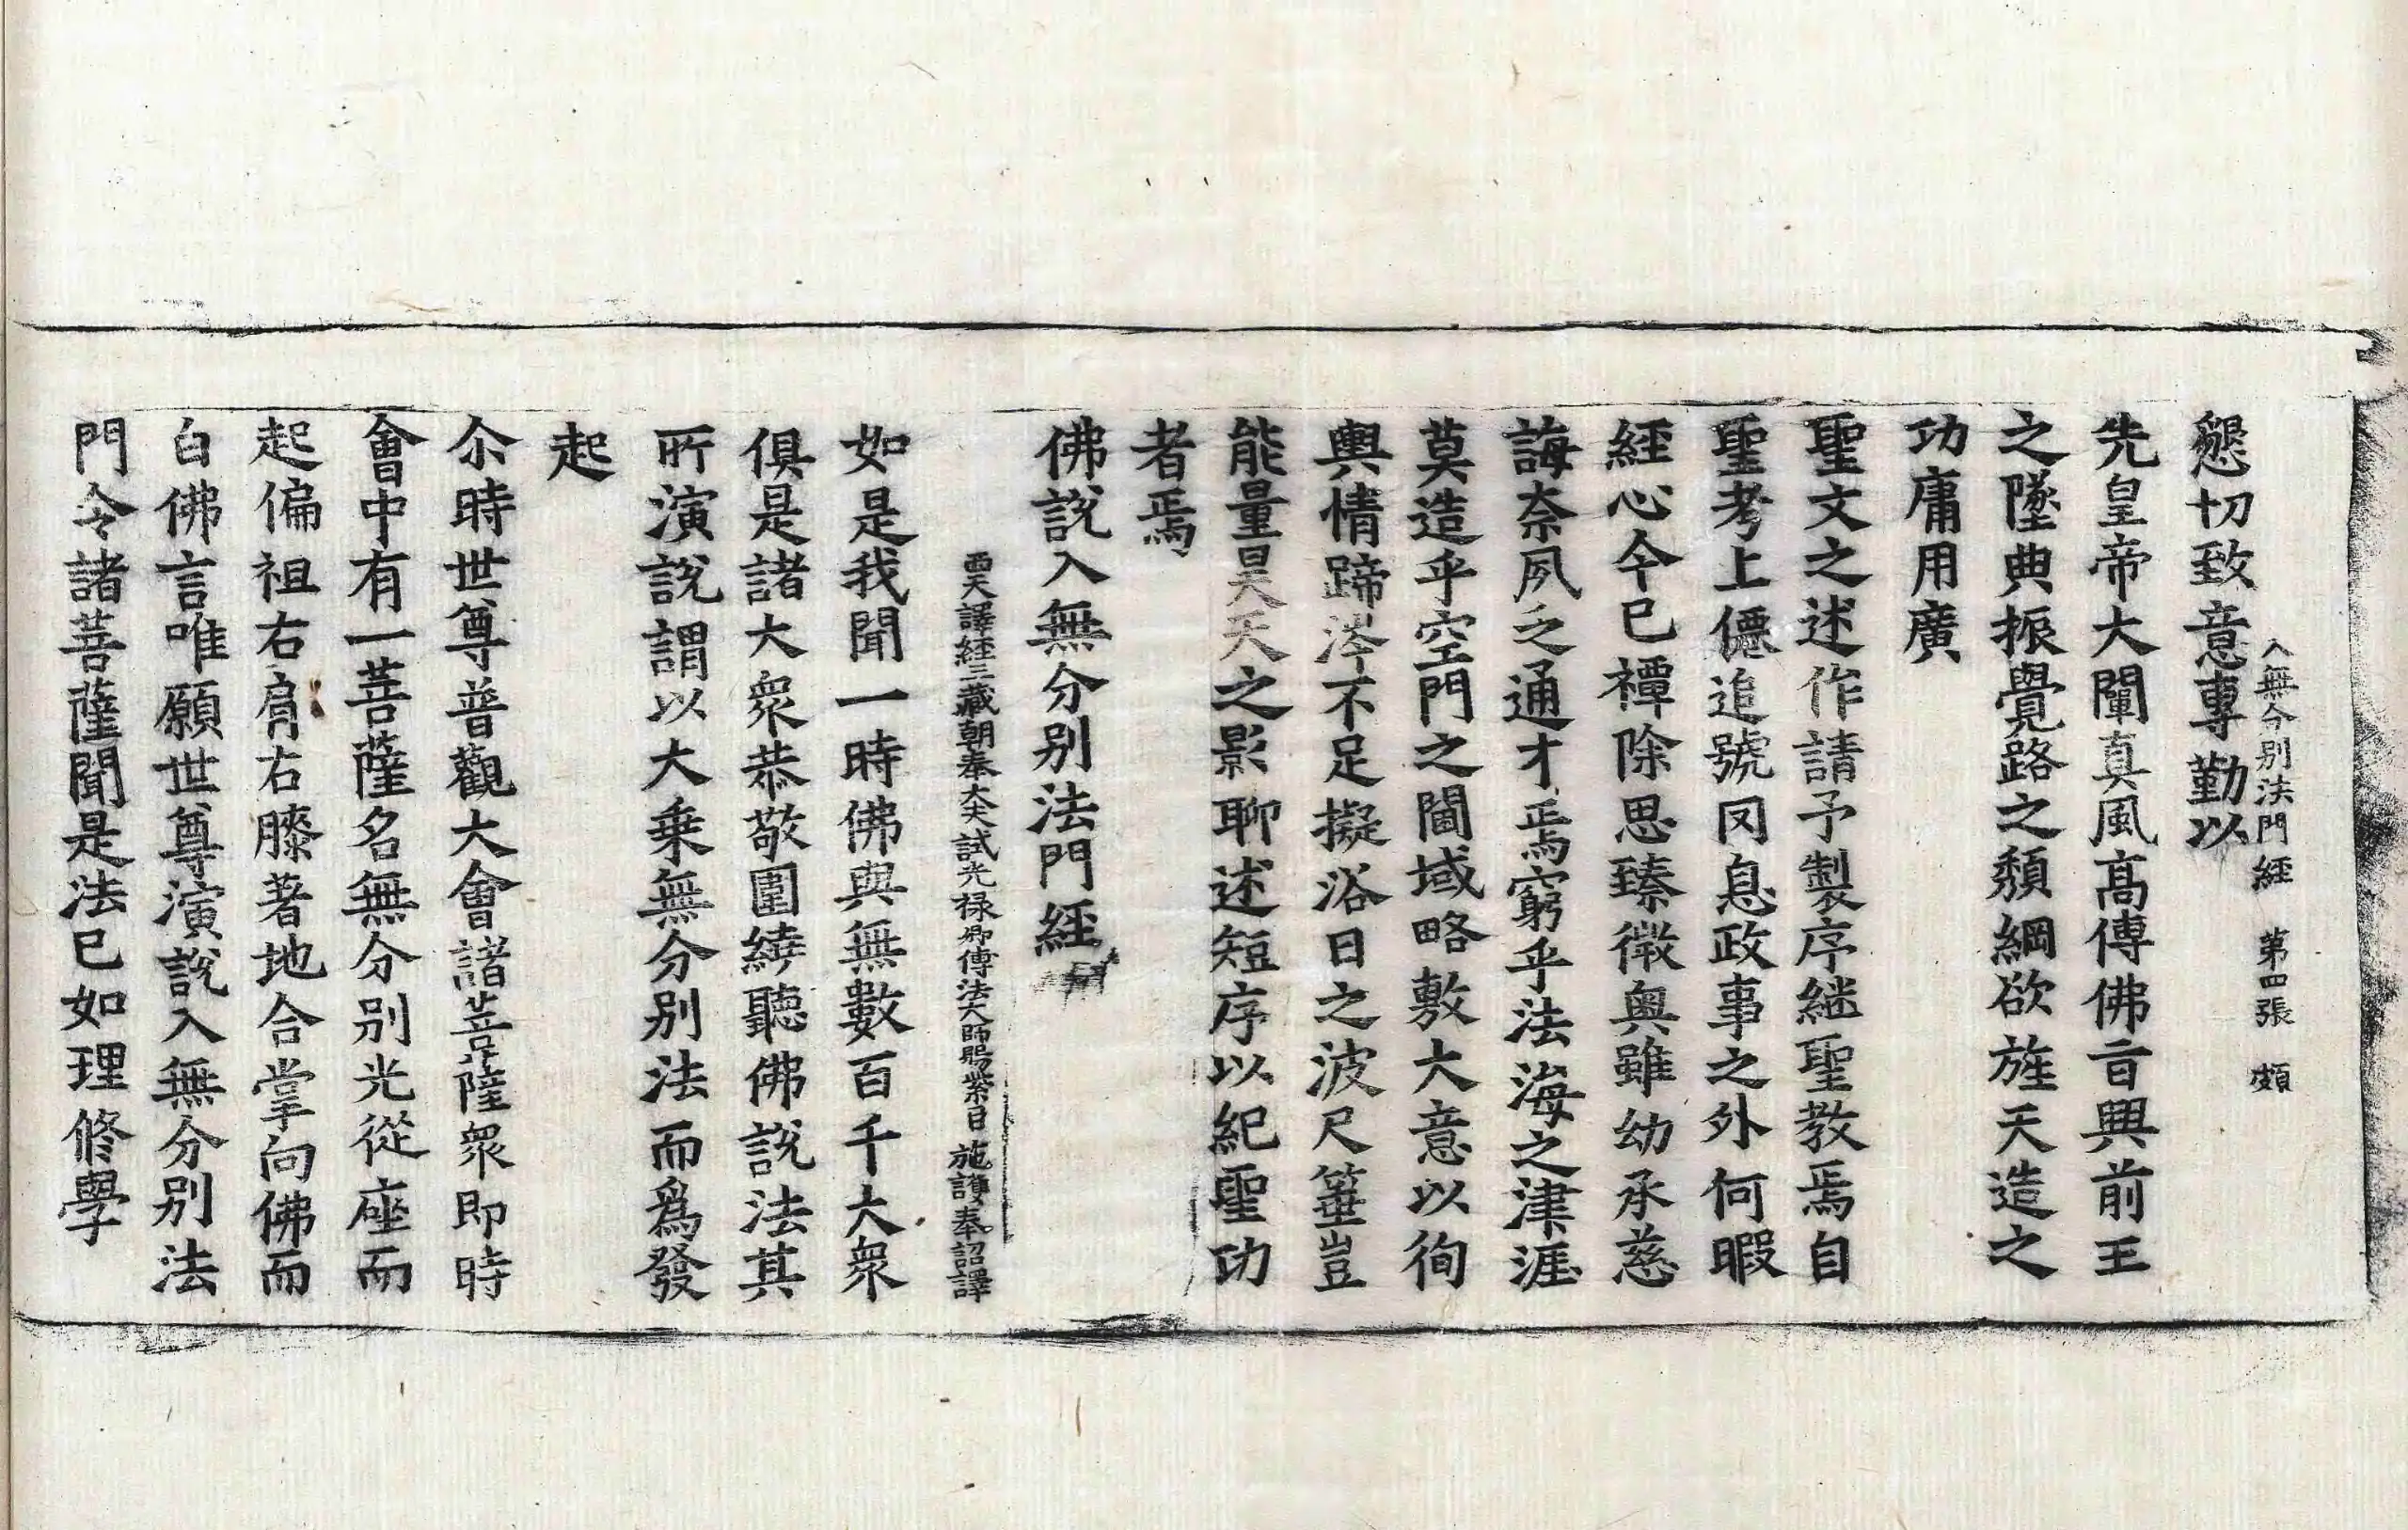 入無分別法門經 第四張 頗
懇切致意專勤以
先皇帝大闡真風高傳佛旨興前王
之墜典振覺路之頹綱欲旌天造之
功庸用廣
聖文之述作請予製序継聖教焉自
聖考上僊追號罔息政事之外何暇
經心今已禫除思臻微奧雖幼承慈
誨奈夙乏通才焉窮乎法海之津涯
莫造乎空門之閫域略敷大意以徇
輿情蹄涔不足擬浴日之波尺箠豈
能量昊天之影聊述短序以紀聖功
者焉
佛說入無分別法門經
西天譯經三藏朝奉大夫試光祿卿傳法大師賜紫臣 施護奉詔譯
如是我聞一時佛與無數百千大衆
俱是諸大衆恭敬圍繞聽佛說法其
所演說謂以大乗無分別法而爲發
起
尒時世尊普觀大會諸菩薩衆即時
會中有一菩薩名無分別光從座而
起偏袒右肩右膝著地合掌向佛而
白佛言唯願世尊演說入無分別法
門令諸菩薩聞是法已如理修學